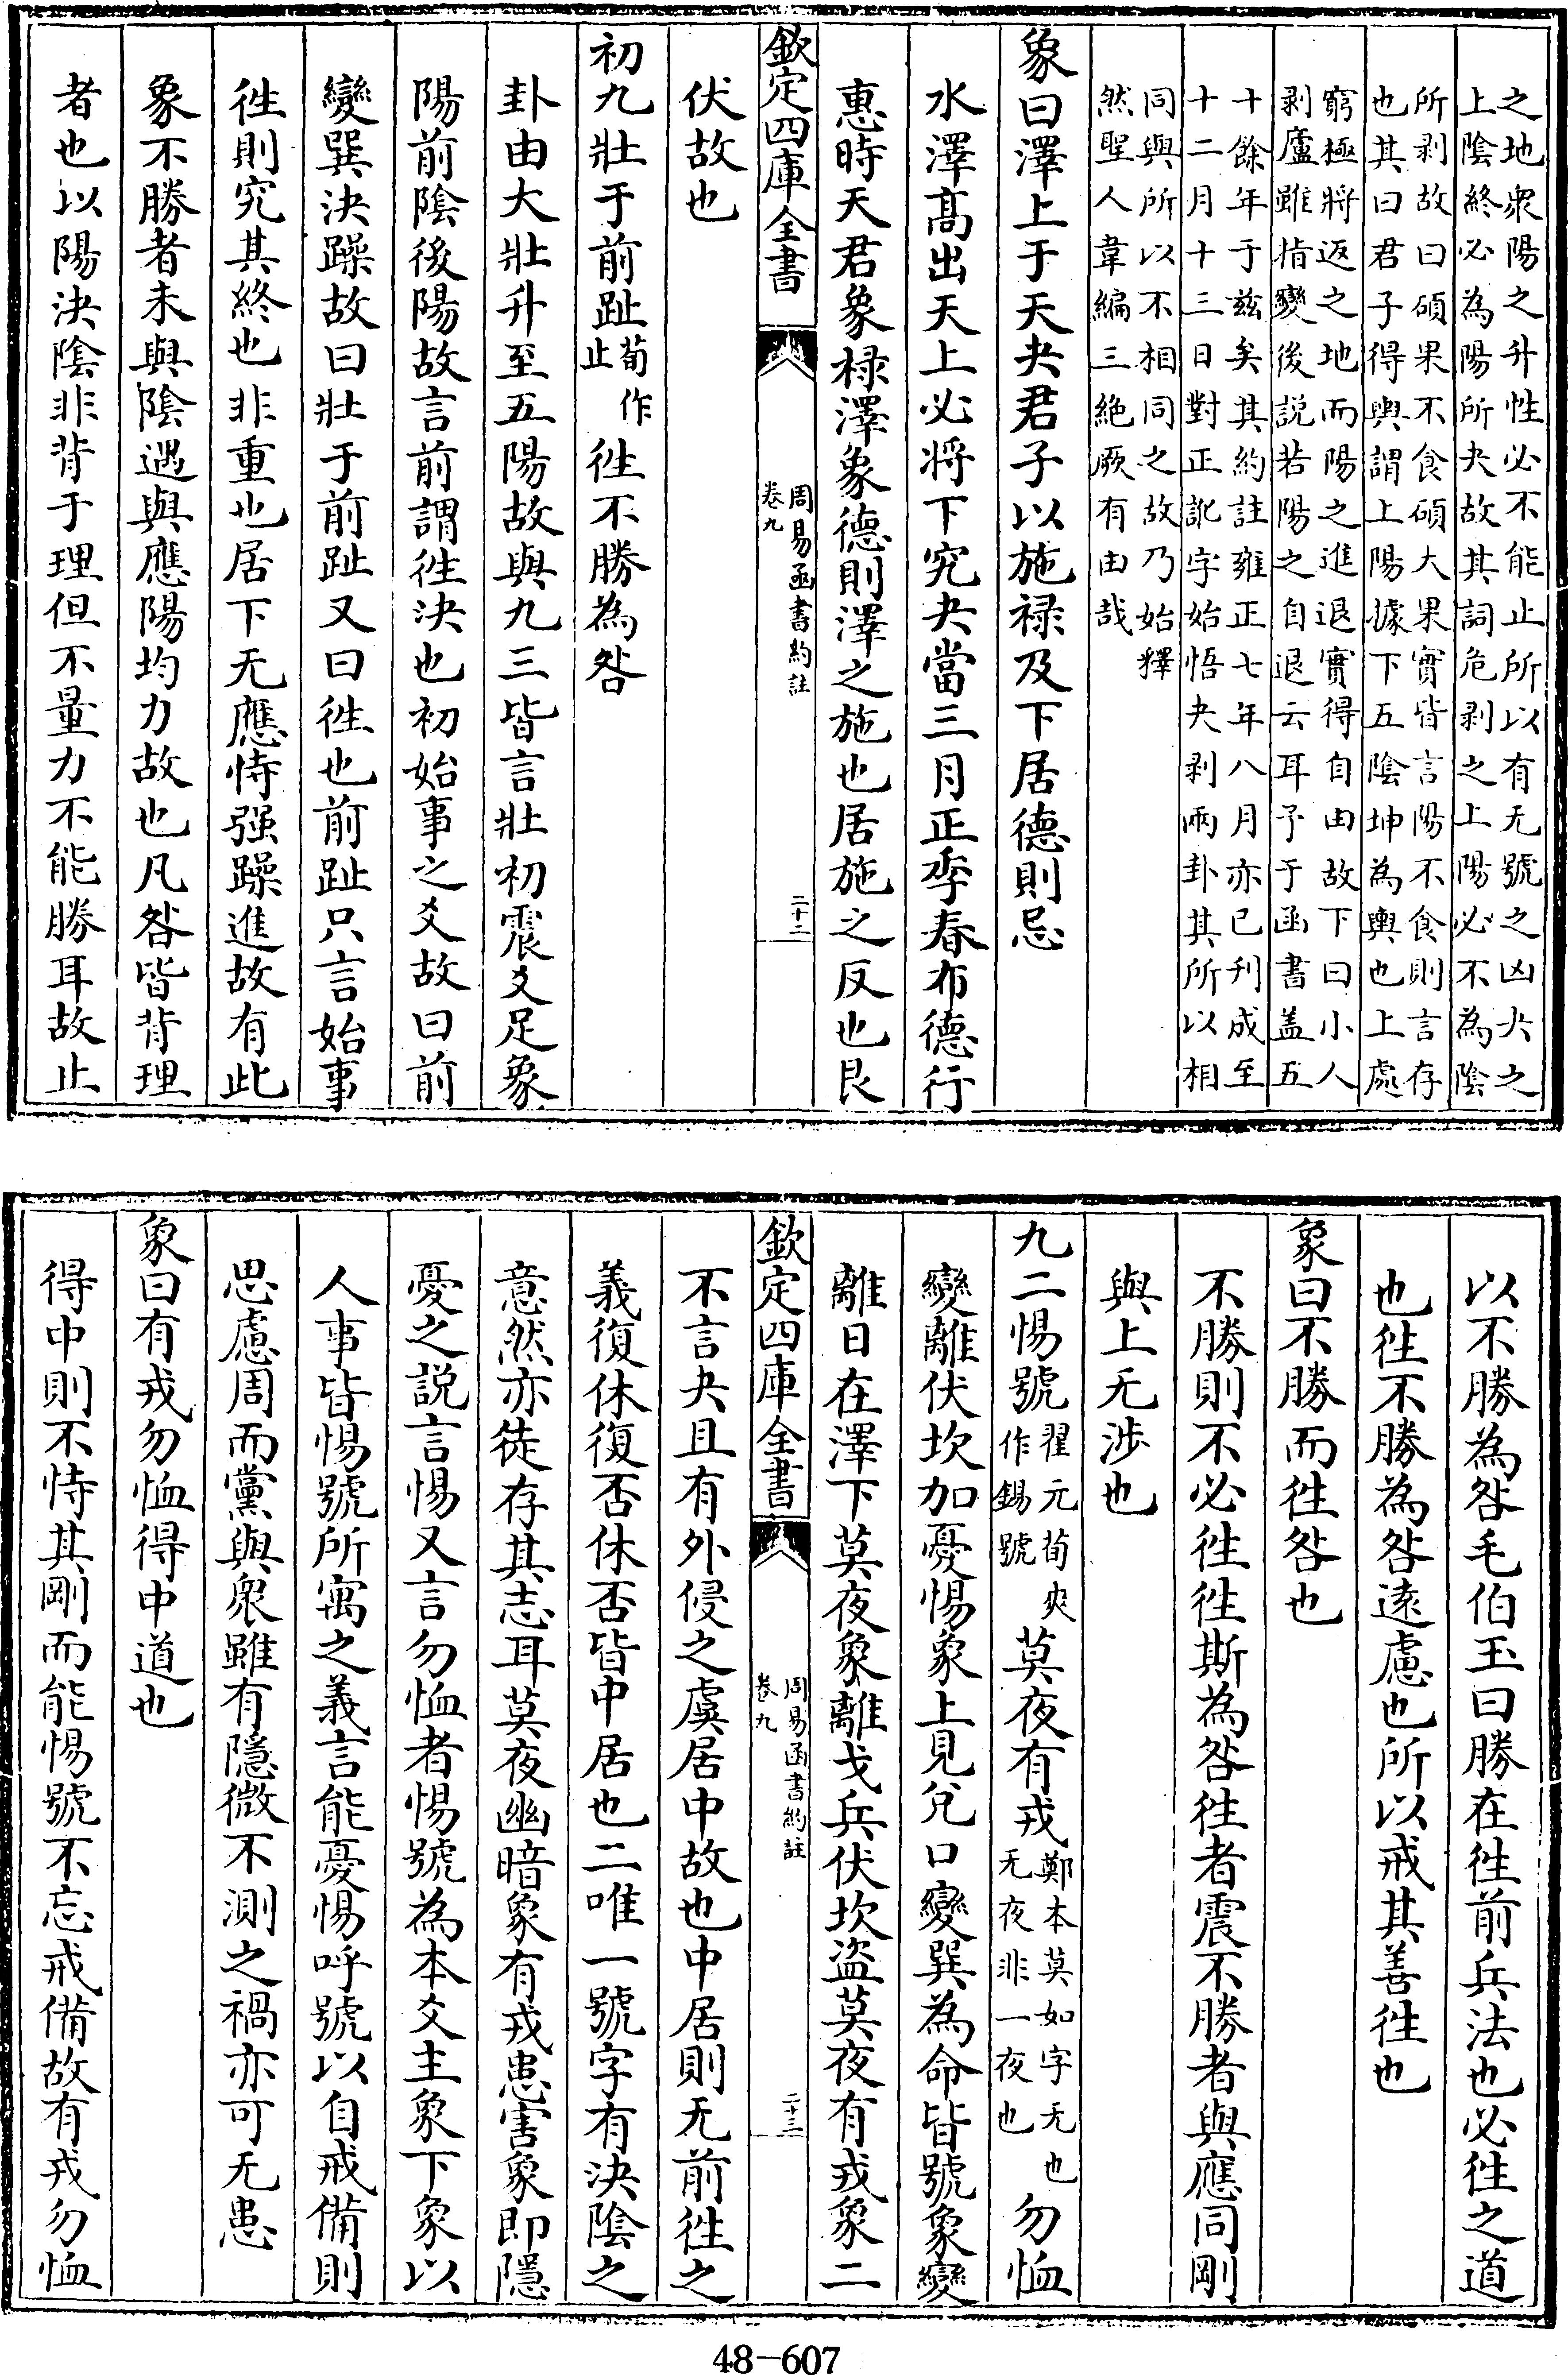 之地衆陽之升性必不能止所以有无號之凶夬之
上陰終必為陽所夬故其詞危剥之上陽必不為陰
所剥故曰碩果不食碩大果實皆言陽不食則言存
也其曰君子得輿謂上陽據下五陰坤為輿也上處
窮極將返之地而陽之進退實得自由故下曰小人
剥廬雖指變後説若陽之自退云耳予于函書盖五
十餘年于兹矣其約註雍正七年八月亦已刋成至
十二月十三日對正訛字始悟夬剥兩卦其所以相
同與所以不相同之故乃始釋
然聖人韋編三絶厥有由哉
象曰澤上于天夬君子以施禄及下居德則忌
水澤髙出天上必将下究夬當三月正季春布德行
惠時天君象禄澤象德則澤之施也居施之反也艮
欽定四庫全書
周易函書約註
卷九
二十二
伏故也
初九壯于前趾荀作止徃不勝為咎
卦由大壯升至五陽故與九三皆言壯初震爻足象
陽前陰後陽故言前謂徃決也初始事之爻故曰前
變巽決躁故曰壯于前趾又曰徃也前趾只言始事
徃則究其終也非重也居下无應恃强躁進故有此
象不勝者未與陰遇與應陽均力故也凡咎皆背理
者也以陽決陰非背于理但不量力不能勝耳故止
以不勝為咎毛伯玉曰勝在徃前兵法也必徃之道
也徃不勝為咎遠慮也所以戒其善徃也
象曰不勝而徃咎也
不勝則不必徃徃斯為咎徃者震不勝者與應同剛
與上无涉也
九二惕號翟元荀爽作錫號莫夜有戎鄭本莫如字无也无夜非一夜也勿恤
變離伏坎加憂惕象上見兊口變巽為命皆號象變
離日在澤下莫夜象離戈兵伏坎盗莫夜有戎象二
欽定四庫全書
周易函書約註
卷九
二十三
不言夬且有外侵之虞居中故也中居則无前徃之
義復休復否休否皆中居也二唯一號字有決陰之
意然亦徒存其志耳莫夜幽暗象有戎患害象即隱
憂之説言惕又言勿恤者惕號為本爻主象下象以
人事皆惕號所寓之義言能憂惕呼號以自戒備則
思慮周而黨與衆雖有隱微不測之禍亦可无患
象曰有戎勿恤得中道也
得中則不恃其剛而能惕號不忘戒備故有戎勿恤
48-607